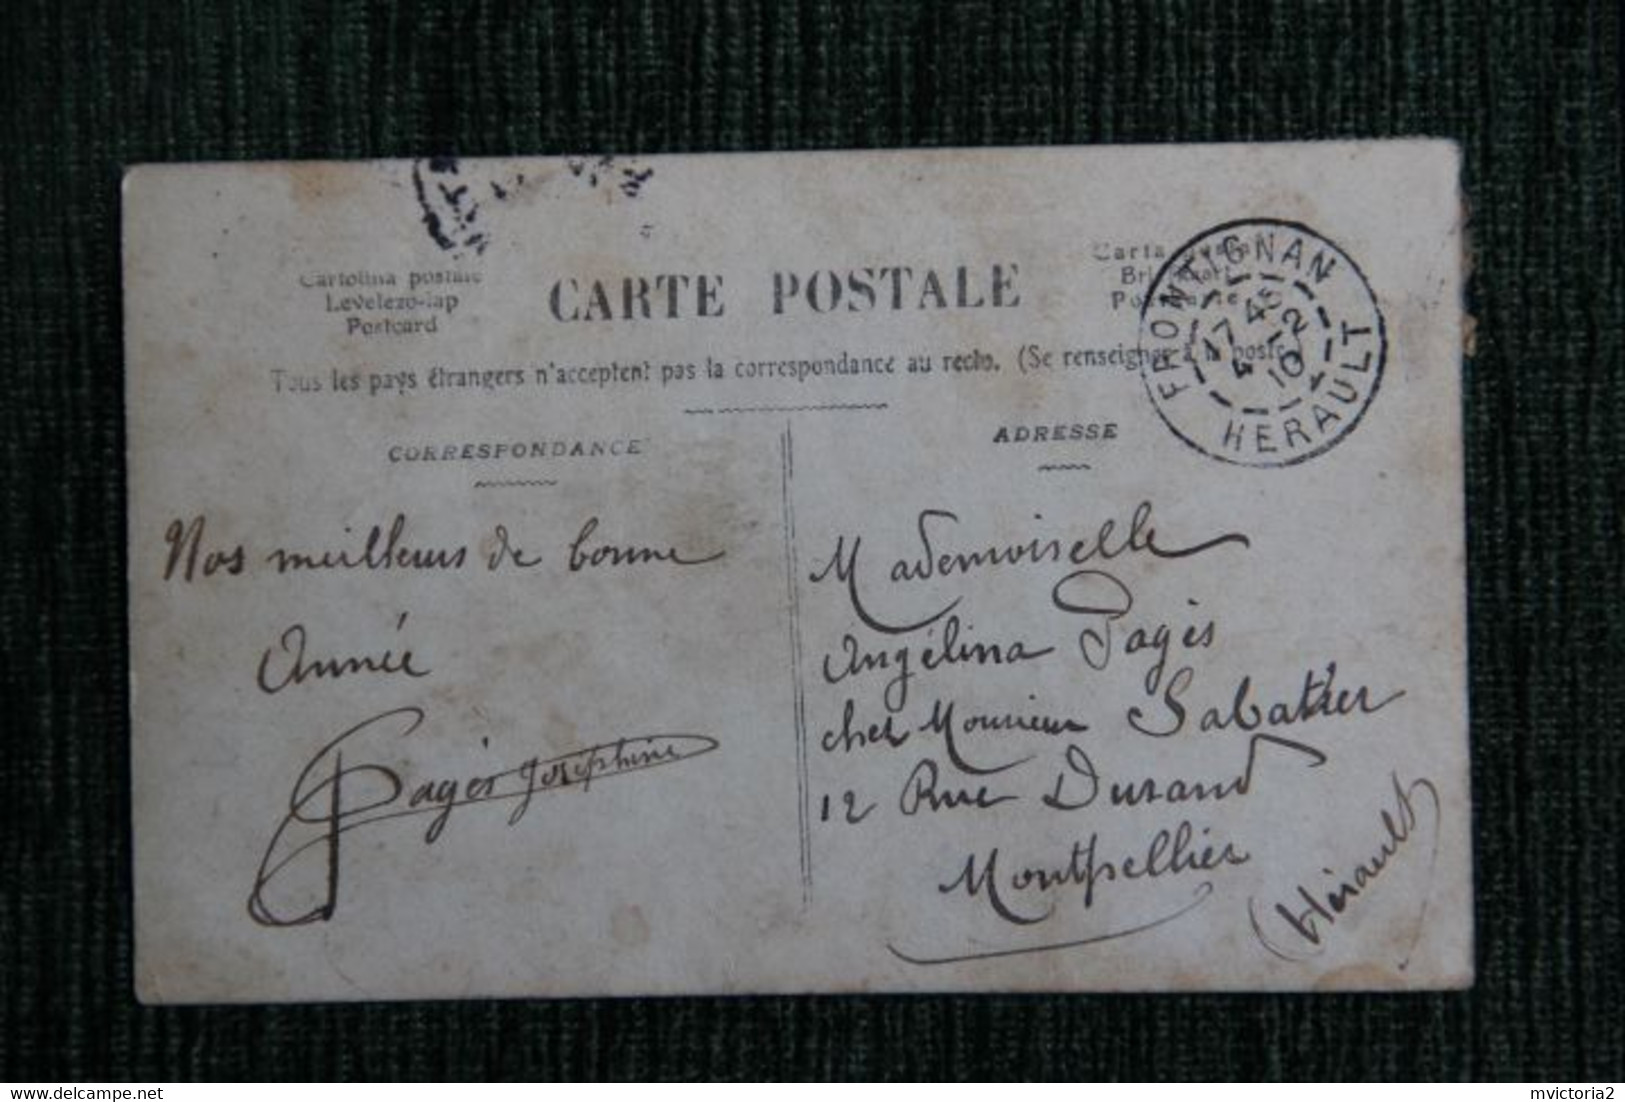 Cartolina postale
Levelezo-lap
Postcard
CARTE POSTALE
Carta
Tous les pays étrangers n'acceptent pas la correspondance au recto. (Se renseigner à la poste
FRONTIGNAN
17 45
4 12
10
HERAULT
CORRESPONDANCE
Nos meilleurs de bonne
Année
Pagès Joséphine
ADRESSE
Mademoiselle
Angélina Pagès
chez Monsieur Sabatier
12 Rue Durand
Montpellier
(Hérault)
Delcampe.net
mvictoria2